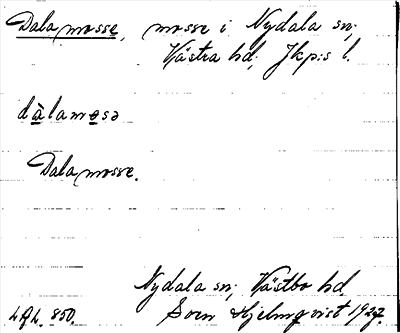 Dala mosse, mosse i Nydala sn;
Västra hd; Jkp:s l.
dàlamosə
Dala mosse.
Nydala sn; Västbo hd
LAL. 850. Sven Hjelmqvist 1927.